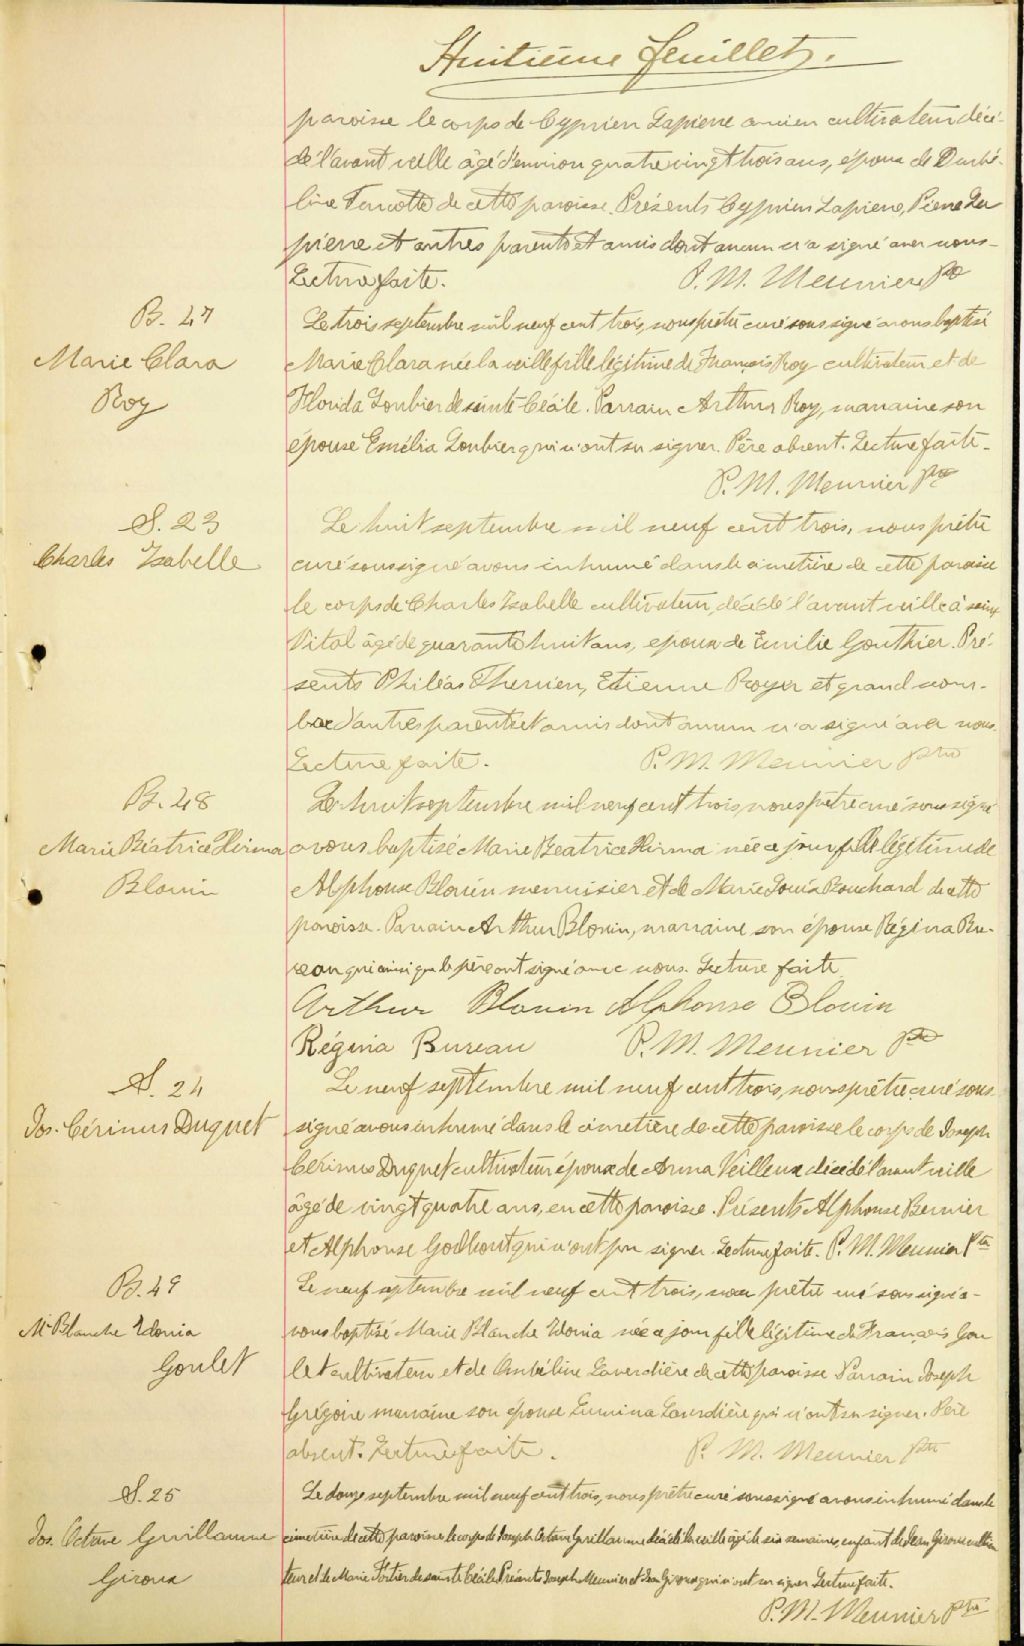 Huitième feuillet.
paroisse le corps de Cyprien Lapierre ancien cultivateur décé-
dé l'avant veille âgé d'environ quatre vingt trois ans, époux de
line Turcotte de cette paroisse. Présents Cyprien Lapierre, Pierre La
pierre et autres parents et amis dont aucun n'a signé avec nous-
Lecture faite. P. M. Meunier Ptre
B. 47
Marie Clara
Roy
Le trois septembre mil neuf cent trois, nous prêtre curé soussigné avons baptisé
Marie Clara née la veille fille légitime de François Roy cultivateur et de
Florida Loubier de sainte Cécile. Parrain Arthur Roy, marraine son
épouse Emélia Loubier qui n'ont su signer. Père absent. Lecture faite-
P. M. Meunier Ptre
S. 23
Charles Isabelle
Le huit septembre mil neuf cent trois, nous prêtre
curé soussigné avons inhumé dans le cimetière de cette paroisse
le corps de Charles Isabelle cultivateur, décédé l'avant veille à saint
Vital âgé de quarante huit ans, epoux de Emilie Gouthier. Pré-
sents Philéas Therrien, Etienne Royer et grand nom-
bre d'autres parents et amis dont aucun n'a signé avec nous.
Lecture faite. P. M. Meunier Ptre
B. 48
Marie Béatrice Hirma
Blouin
Le huit septembre mil neuf cent trois, nous prêtre curé soussigné
avons baptisé Marie Beatrice Hirma née ce jour fille légitime de
Alphonse Blouin menuisier et de Marie Louise Bouchard de cette
paroisse. Parrain Arthur Blouin, marraine son épouse Régina Bu-
reau qui ainsi que le père ont signé avec nous. Lecture faite
Arthur Blouin Alphonse Blouin
Régina Bureau P. M. Meunier Ptre
S. 24
Jos. Cérinus Duquet
Le neuf septembre mil neuf cent trois, nous prêtre curé sous-
signé avons inhumé dans le cimetière de cette paroisse le corps de Joseph
Cérinus Duquet cultivateur époux de Anna Veilleux décédé l'avant veille
âgé de vingt quatre ans, en cette paroisse. Présents Alphonse Bernier
et Alphonse Godbout qui n'ont pu signer. Lecture faite. P. M. Meunier Ptre
B. 49
M. Blanche Idonia
Goulet
Le neuf septembre mil neuf cent trois, nous prêtre curé soussigné a-
vons baptisé Marie Blanche Idonia née ce jour fille légitime de François Gou
let cultivateur et de Ombéline Laverdière de cette paroisse Parrain Joseph
Grégoire marraine son épouse Lumina Laverdière qui n'ont su signer. Père
absent. Lecture faite. P. M. Meunier Ptre
S. 25
Jos. Octave Guillaume
Giroux
Le douze septembre mil neuf cent trois, nous prêtre curé soussigné avons inhumé dans le
cimetière de cette paroisse le corps de Joseph Octave Guillaume décédé la veille âgé de six semaines, enfant de Jean Giroux cultiva
teur et de Marie Fortier de sainte Cécile. Présents Joseph Meunier et Jean Giroux qui n'ont su signer Lecture faite.
P. M. Meunier Ptre